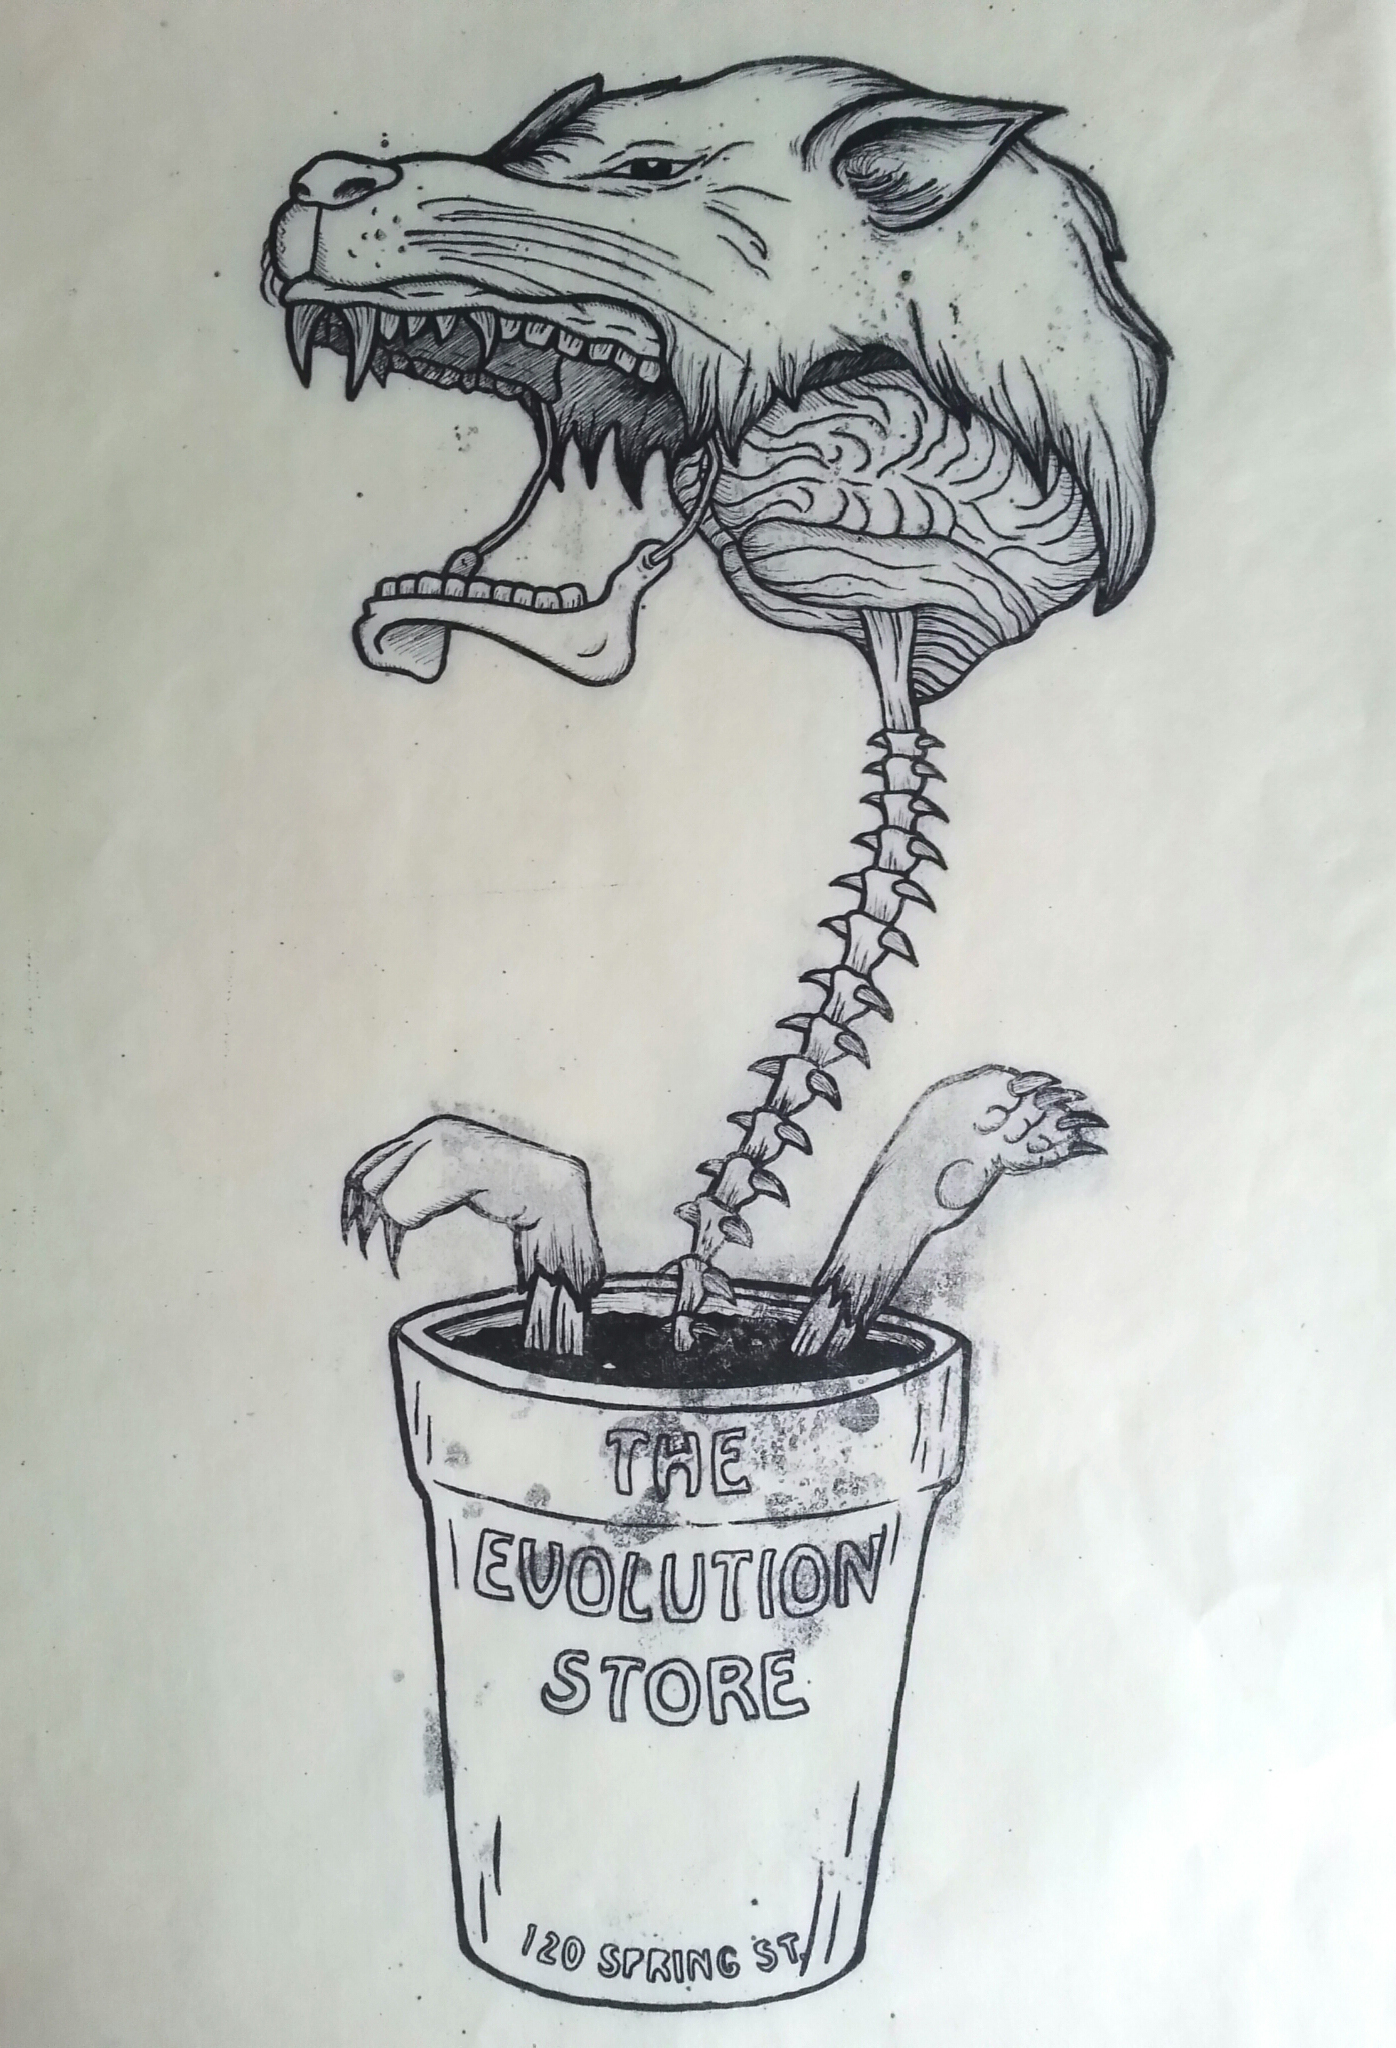 THE
EVOLUTION
STORE
120 SPRING ST.